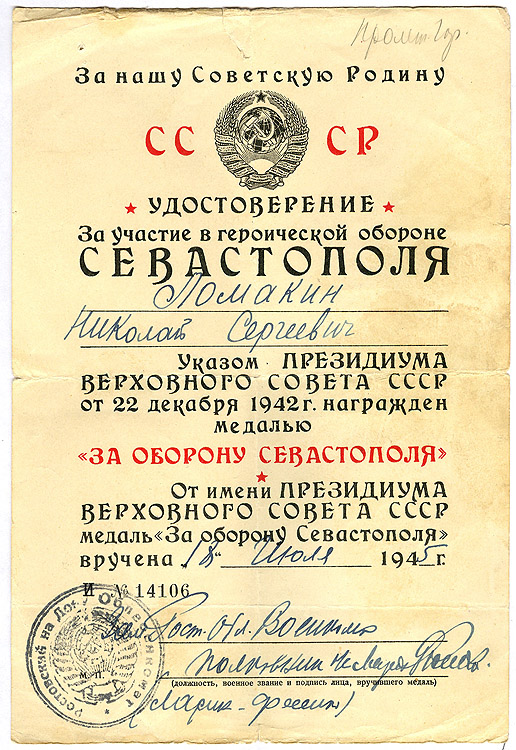 За нашу Советскую Родину
СС СР
УДОСТОВЕРЕНИЕ
За участие в героической обороне
СЕВАСТОПОЛЯ
Ломакин
Николай Сергеевич
Указом ПРЕЗИДИУМА
ВЕРХОВНОГО СОВЕТА СССР
от 22 декабря 1942 г. награжден
медалью
«ЗА ОБОРОНУ СЕВАСТОПОЛЯ»
От имени ПРЕЗИДИУМА
ВЕРХОВНОГО СОВЕТА СССР
медаль «За оборону Севастополя»
вручена „18" Июля 1945 г.
И № 14106
Рост. Обл. Военкома
Ростовский на Дону Облвоенкомат
М. П.
полковник
(должность, военное звание и подпись лица, вручившего медаль)